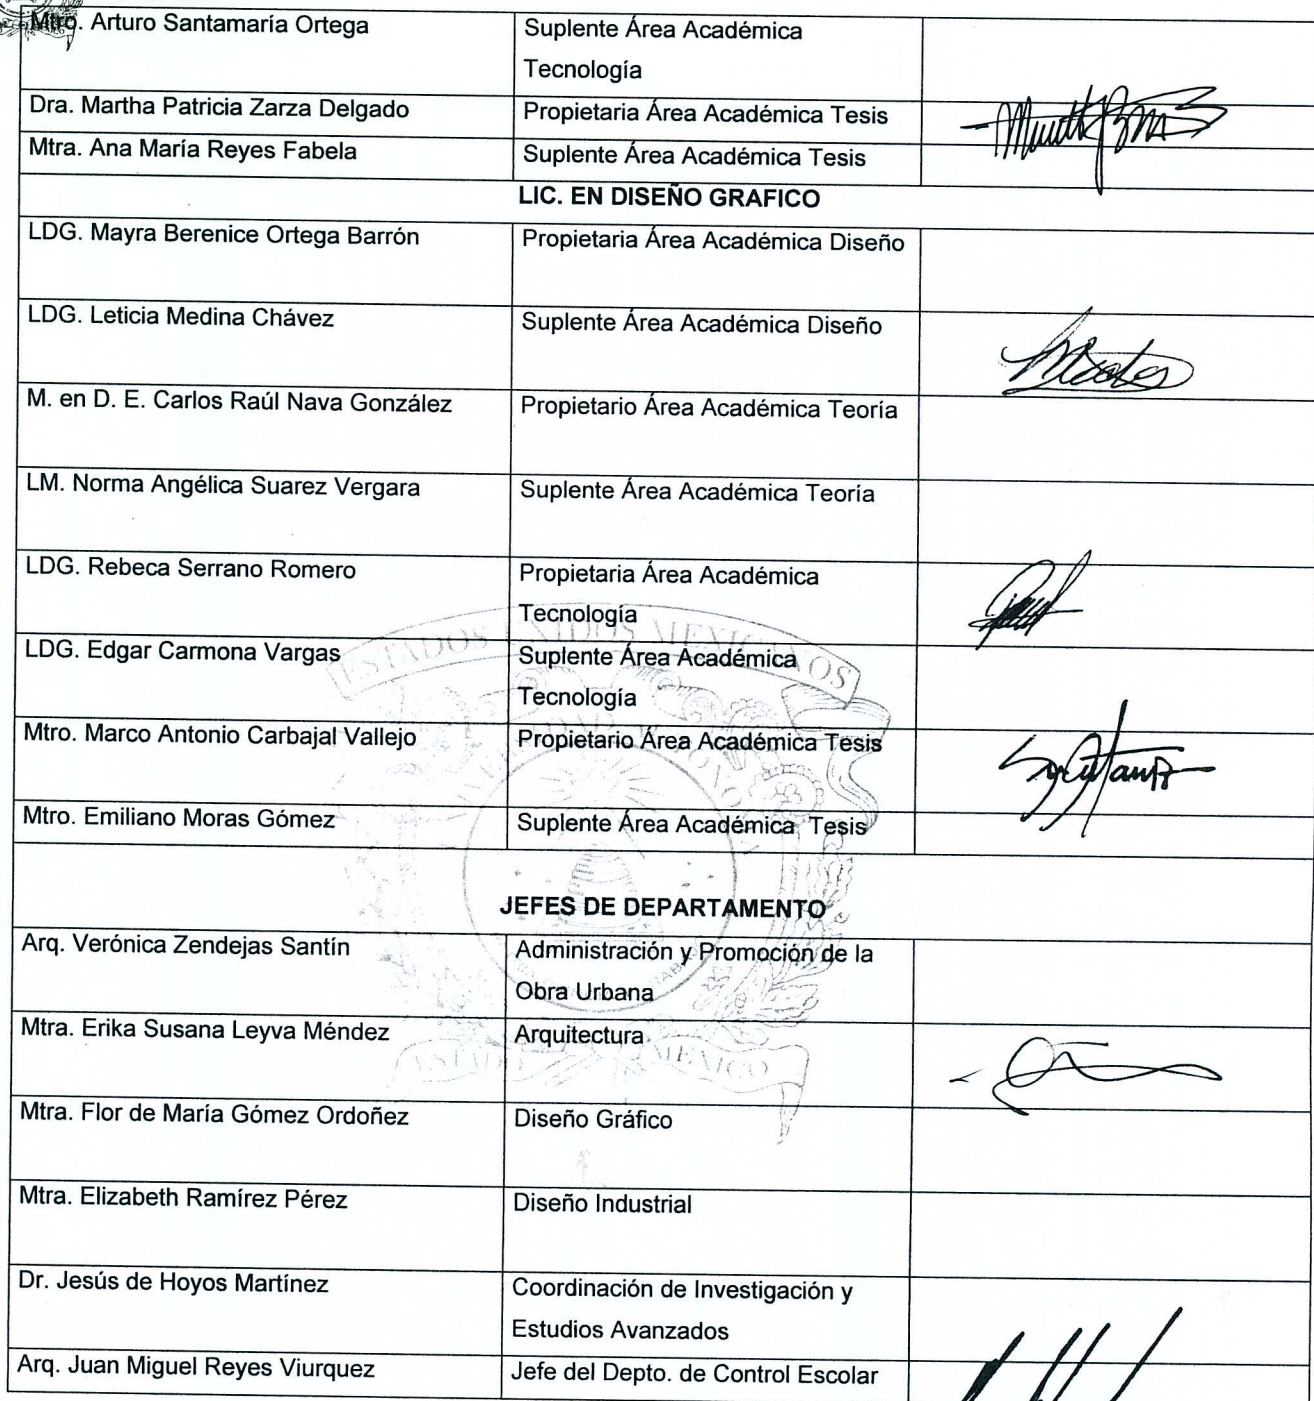 Mtro. Arturo Santamaría Ortega Suplente Área Académica
Tecnología
Dra. Martha Patricia Zarza Delgado Propietaria Área Académica Tesis
Mtra. Ana María Reyes Fabela Suplente Área Académica Tesis
LIC. EN DISEÑO GRAFICO
LDG. Mayra Berenice Ortega Barrón Propietaria Área Académica Diseño
LDG. Leticia Medina Chávez Suplente Área Académica Diseño
M. en D. E. Carlos Raúl Nava González Propietario Área Académica Teoría
LM. Norma Angélica Suarez Vergara Suplente Área Académica Teoría
LDG. Rebeca Serrano Romero Propietaria Área Académica
Tecnología
ESTADOS UNIDOS MEXICANOS
LDG. Edgar Carmona Vargas Suplente Área Académica
Tecnología
Mtro. Marco Antonio Carbajal Vallejo Propietario Área Académica Tesis
Mtro. Emiliano Moras Gómez Suplente Área Académica Tesis
JEFES DE DEPARTAMENTO
Arq. Verónica Zendejas Santín Administración y Promoción de la
Obra Urbana
Mtra. Erika Susana Leyva Méndez Arquitectura
ESTADO MEXICO
Mtra. Flor de María Gómez Ordoñez Diseño Gráfico
Mtra. Elizabeth Ramírez Pérez Diseño Industrial
Dr. Jesús de Hoyos Martínez Coordinación de Investigación y
Estudios Avanzados
Arq. Juan Miguel Reyes Viurquez Jefe del Depto. de Control Escolar